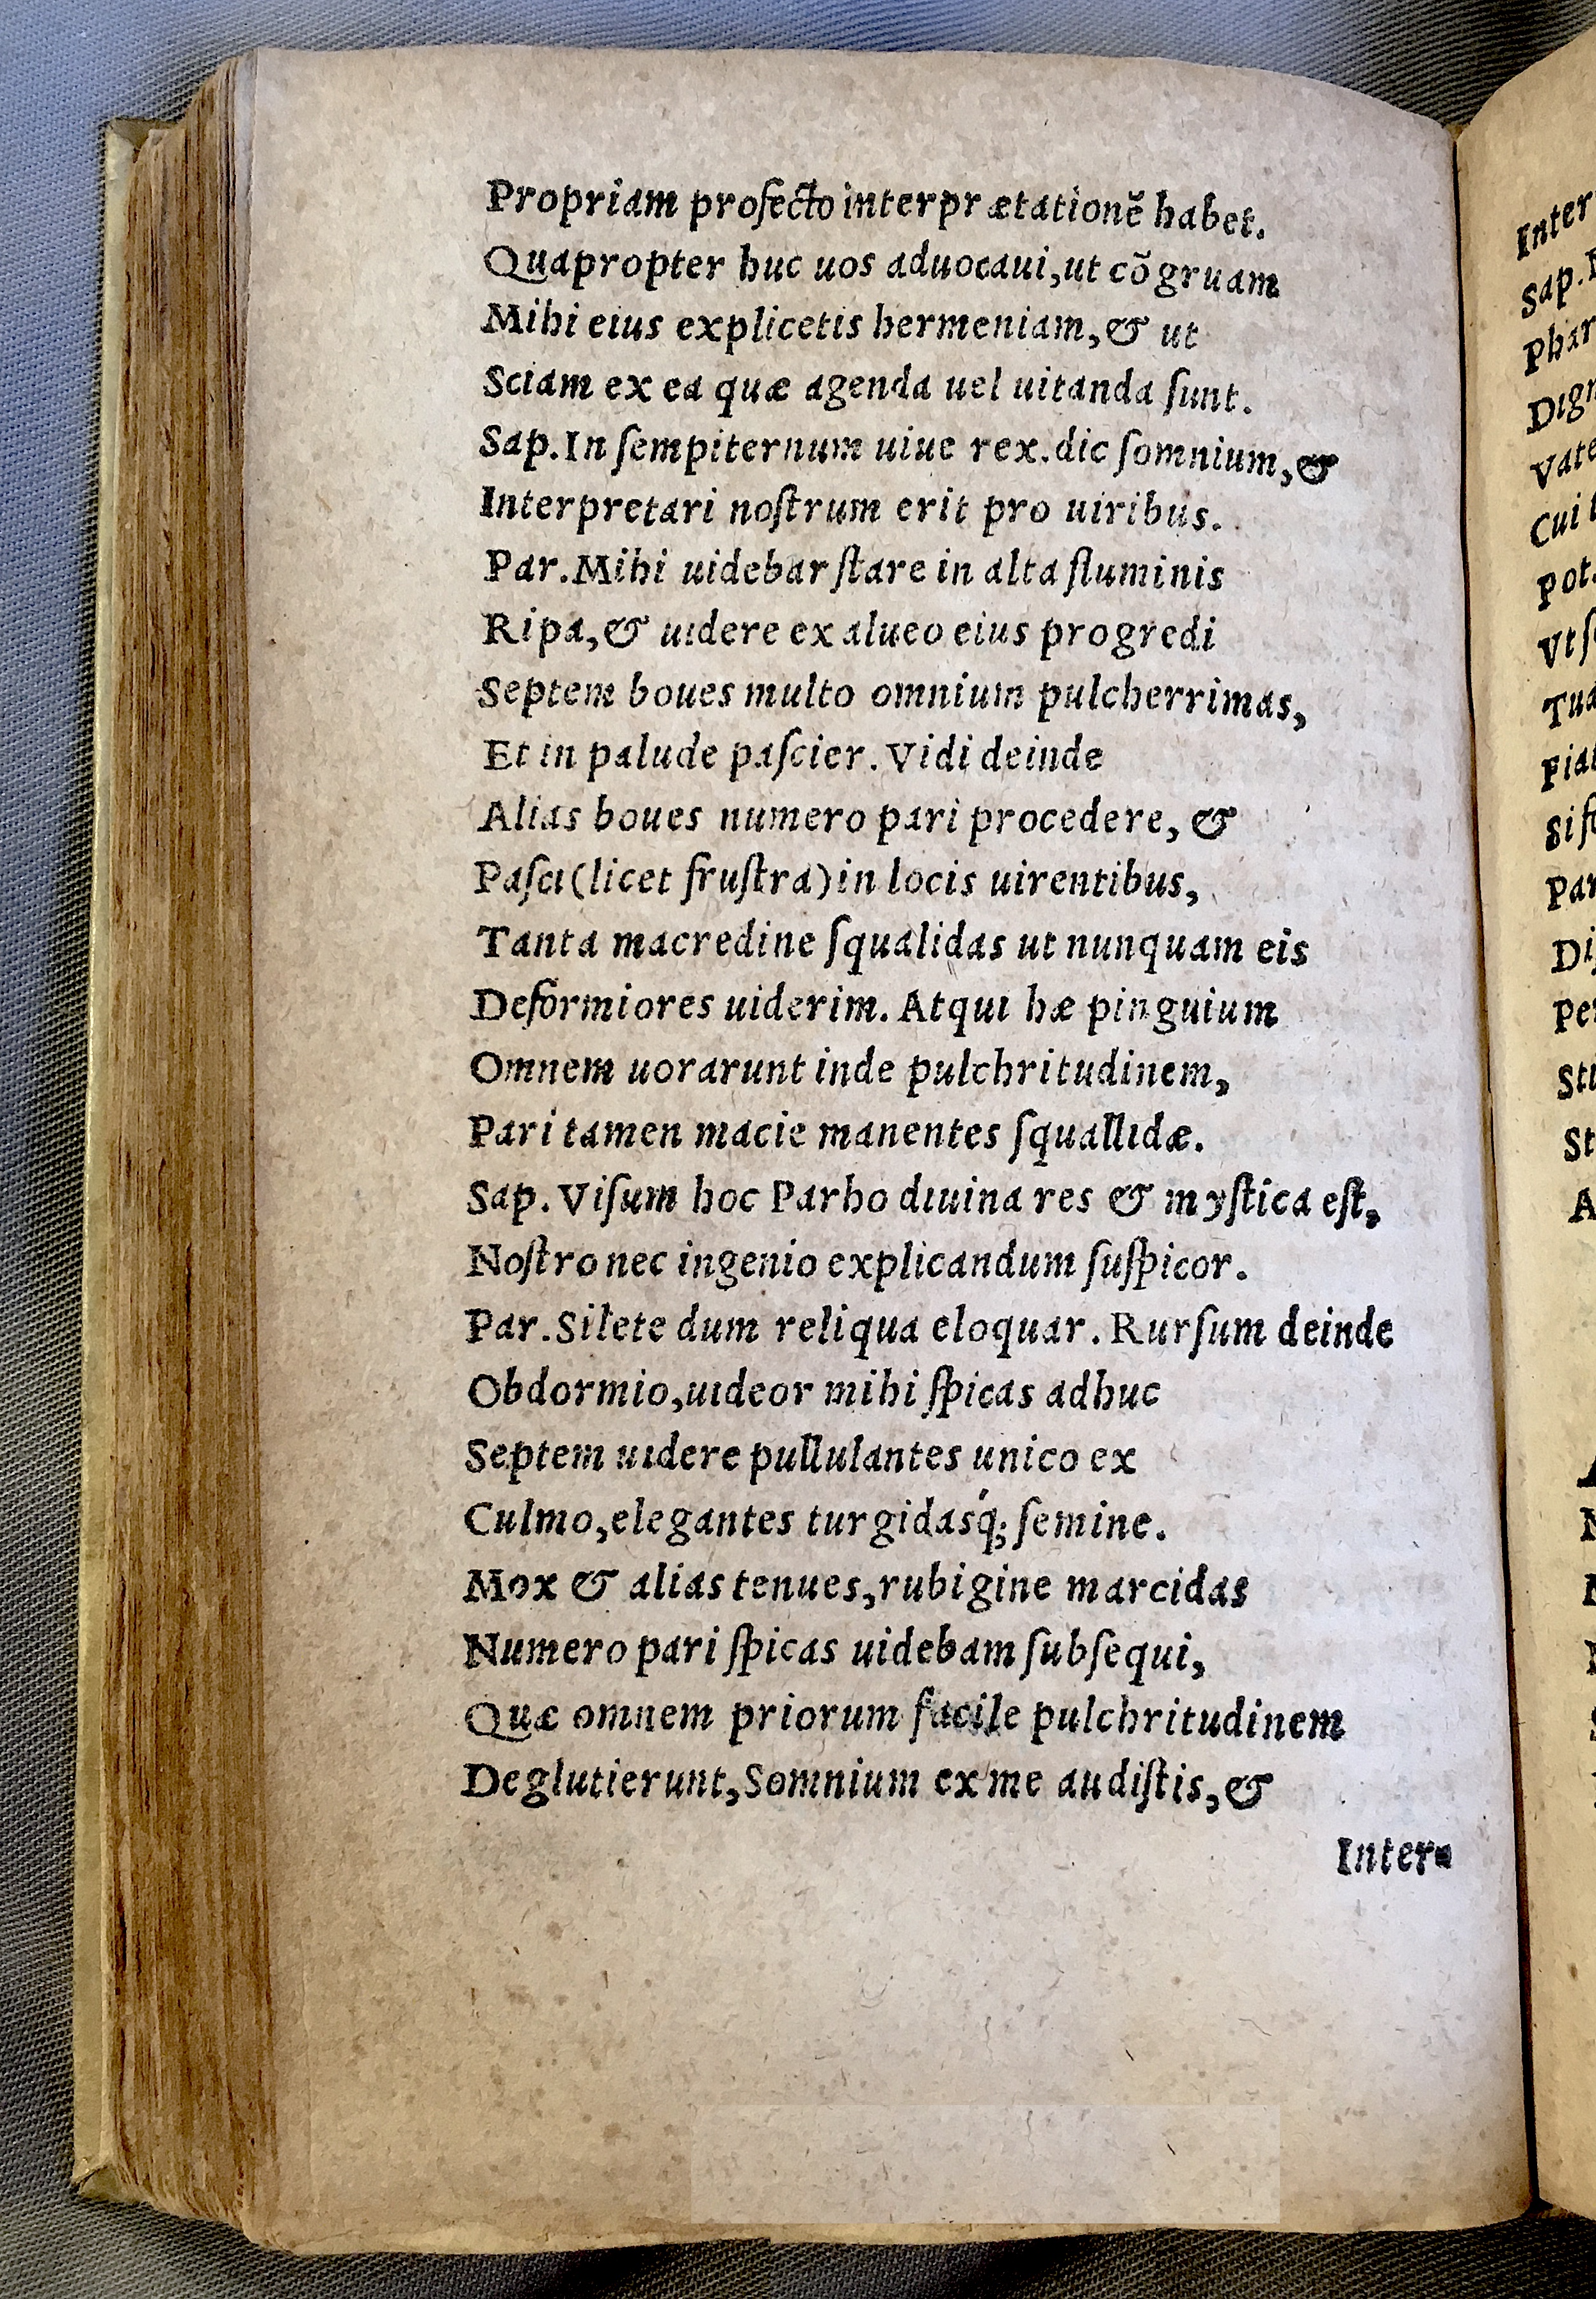 Propriam profecto interprætationẽ habet.
Quapropter huc uos aduocaui,ut cõgruam
Mihi eius explicetis hermeniam,& ut
Sciam ex ea quæ agenda uel uitanda ſunt.
Sap.In ſempiternum uiue rex.dic ſomnium,&
Interpretari noſtrum erit pro uiribus.
Par.Mihi uidebar ſtare in alta fluminis
Ripa,& uidere ex alueo eius progredi
Septem boues multo omnium pulcherrimas,
Et in palude paſcier. Vidi deinde
Alias boues numero pari procedere, &
Paſci(licet fruſtra)in locis uirentibus,
Tanta macredine ſqualidas ut nunquam eis
Deformiores uiderim. Atqui hæ pinguium
Omnem uorarunt inde pulchritudinem,
Pari tamen macie manentes ſquallidæ.
Sap. Viſum hoc Parho diuina res & myſtica eſt,
Noſtro nec ingenio explicandum ſuſpicor.
Par.Silete dum reliqua eloquar. Rurſum deinde
Obdormio,uideor mihi ſpicas adhuc
Septem uidere pullulantes unico ex
Culmo,elegantes turgidasq́; ſemine.
Mox & alias tenues,rubigine marcidas
Numero pari ſpicas uidebam ſubſequi,
Quæ omnem priorum facile pulchritudinem
Deglutierunt,Somnium ex me audiſtis,&
Inter-
Inter
Sap.
Phar
Dign
Vate
Cui
Pot
Vt
Tua
Fiat
Si
Par
Di
Pe
St
A